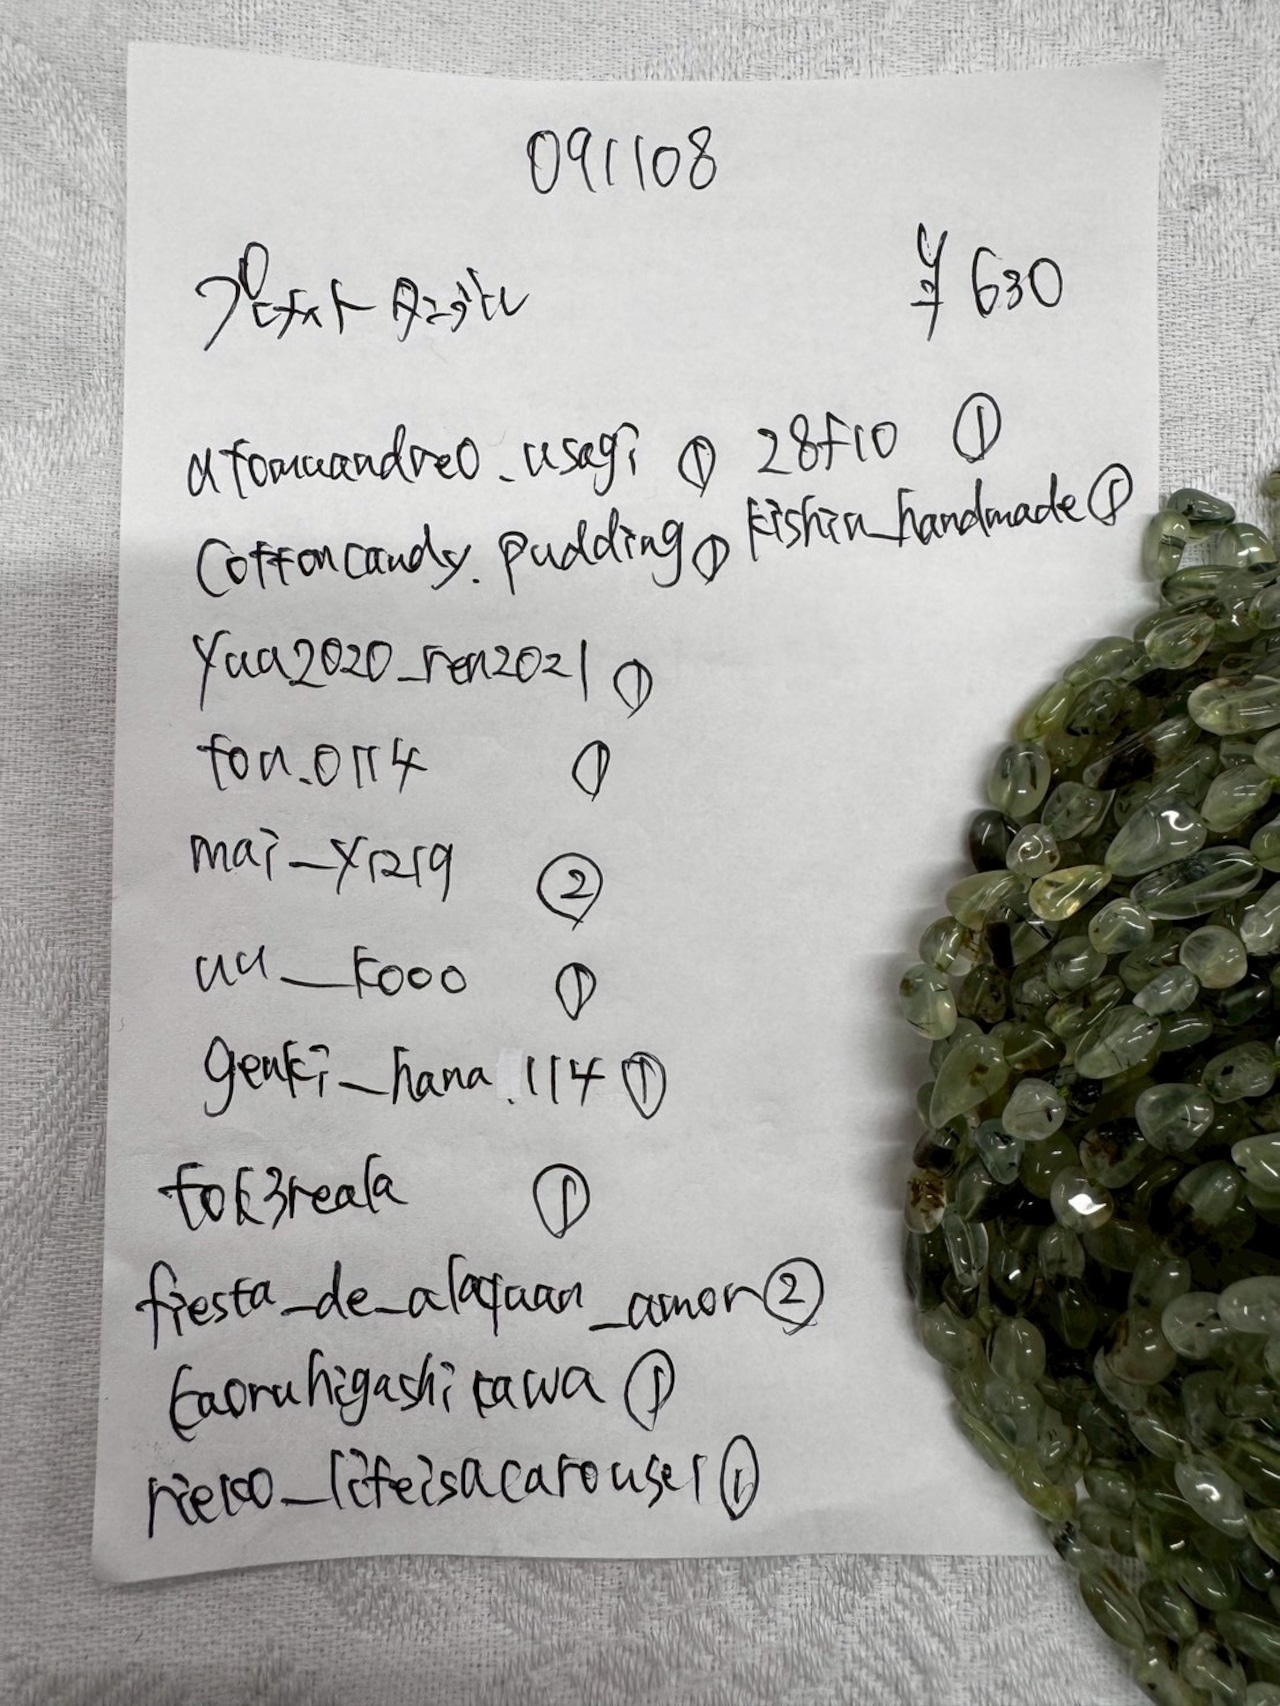 091108
プレナイト タンブル ¥630
atomuandreo_usagi ① 28f10 ①
cottoncandy.pudding ① kishin_handmade ①
yaa2020_ren2021 ①
ton.0114 ①
mai_y1219 ②
uu_kooo ①
genki_hana.114 ①
tok3reala ①
fiesta_de_alaquan_amor ②
kaoruhigashikawa ①
rieko_lifeisacarousel ①